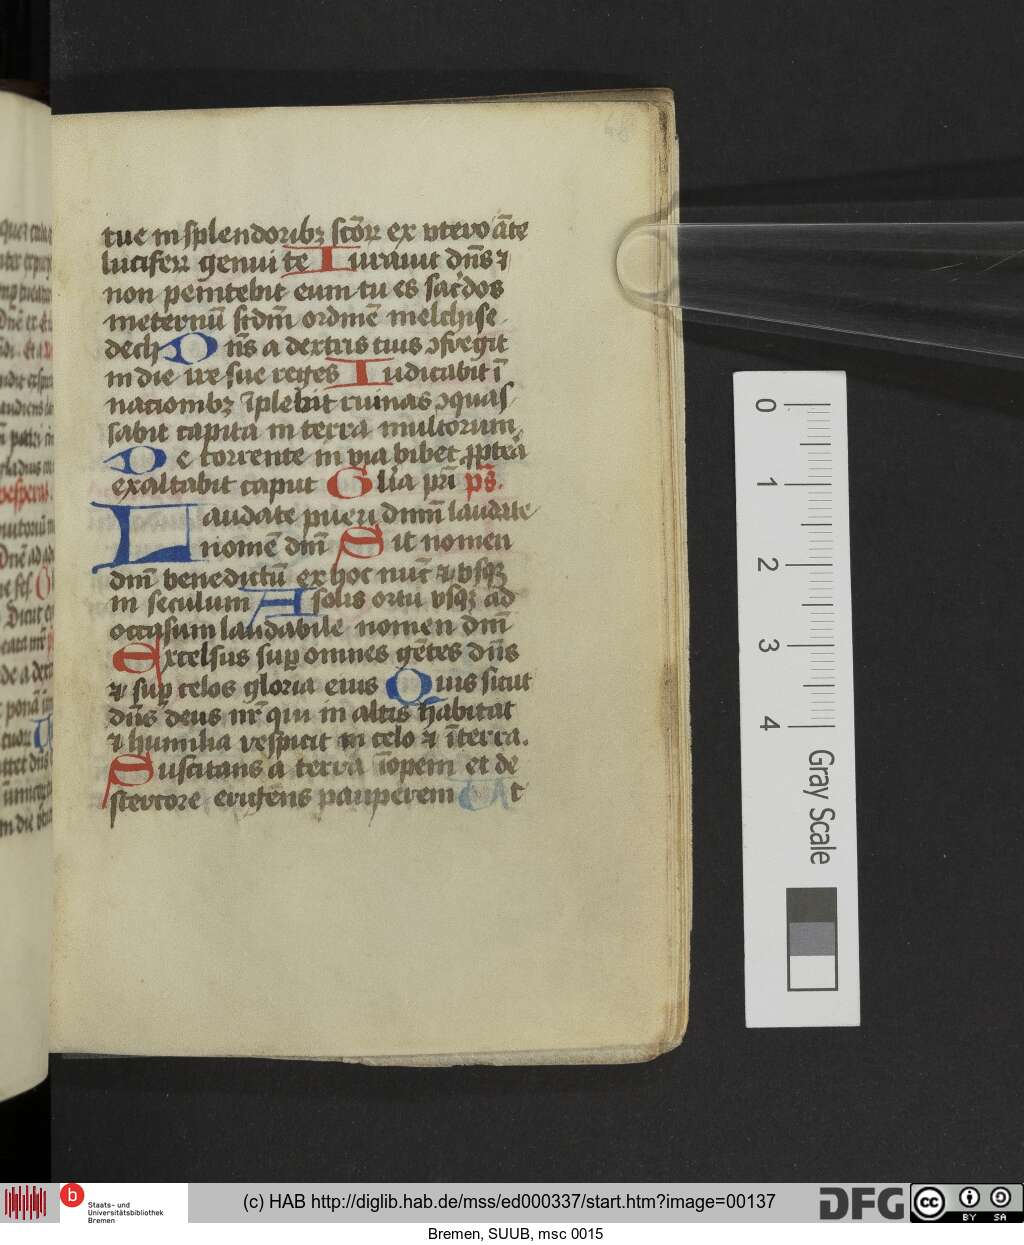 tue in splendoribꝫ sc̄oꝝ ex vtero ān̄te
luciferꝝ genui te Iurauit dn̄s ⁊
non penitebit eum tu es sac̄dos
ineternū scdm̄ ordinē melchise
dech Dn̄s a dextris tuis ꝯfregit
in die ire sue reges Iudicabit ī
nacionibꝫ īplebit ruinas ꝯquas
sabit capita in terra multorum
De torrente in via bibet ꝓpteā
exaltabit caput Gl̄ia pr̄i ps̄.
Laudate pueri dn̄m laudate
nomē dn̄i Sit nomen
dn̄i benedictū ex hoc nūc ⁊ vsqꝫ
in seculum A solis ortu vsqꝫ ad
occasum laudabile nomen dn̄i
Excelsus suꝑ omnes gētes dn̄s
⁊ suꝑ celos gloria eius Quis sicut
dn̄s deus nr̄ qui in altis habitat
⁊ humilia respicit in celo ⁊ īterra.
Suscitans a terra īopem et de
stercore erigens pauperem Vt
0
1
2
3
4
Gray Scale
b
Staats- und
Universitätsbibliothek
Bremen
(c) HAB http://diglib.hab.de/mss/ed000337/start.htm?image=00137
DFG
cc BY SA
Bremen, SUUB, msc 0015